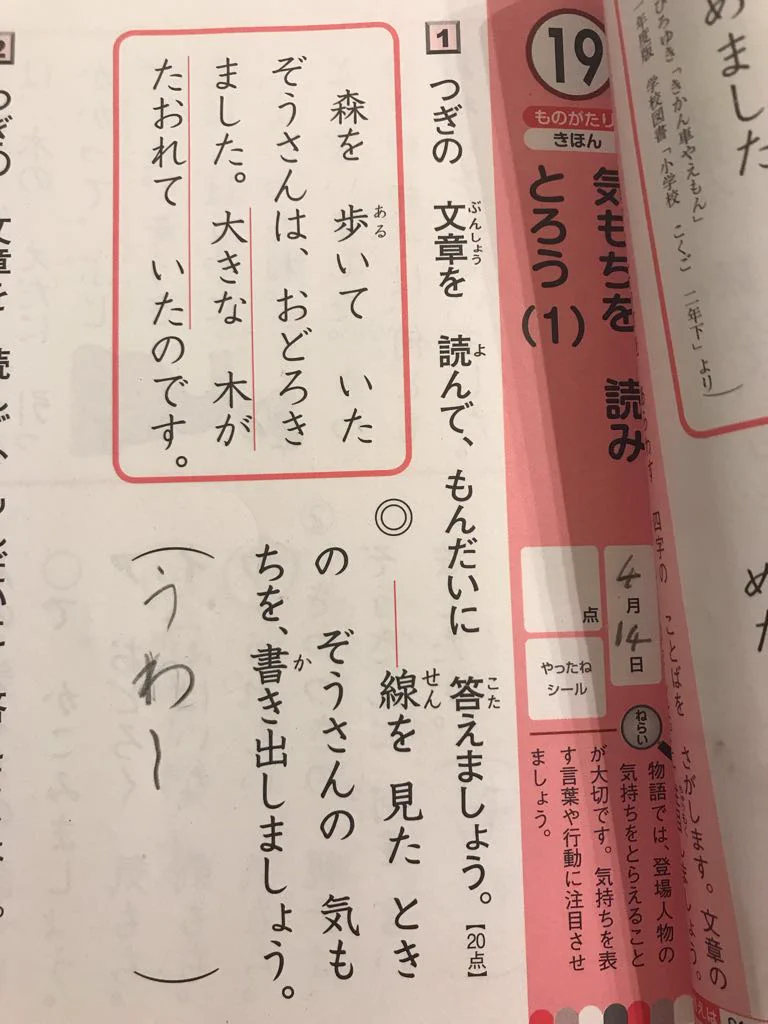 めました
ひろゆき「きかん車やえもん」
年度版　学校図書「小学校　こくご　二年下」より）
め
四字の　ことばを　さがします。文章の
19
ものがたり
きほん
気もちを　読み
とろう（1）
4月14日
点
やったね
シール
ねらい
物語では、登場人物の
気持ちをとらえること
が大切です。気持ちを表
す言葉や行動に注目させ
ましょう。
1 つぎの　文章を　読んで、もんだいに　答えましょう。【20点】
ぶんしょう
よ
こた
森を　歩いて　いた
ある
ぞうさんは、おどろき
ました。大きな　木が
たおれて　いたのです。
◎ ――線を　見た　とき
せん
の　ぞうさんの　気も
ちを、書き出しましょう。
か
（うわー）
2 つぎの　文章を　読んで、もんだいに　答えましょう。